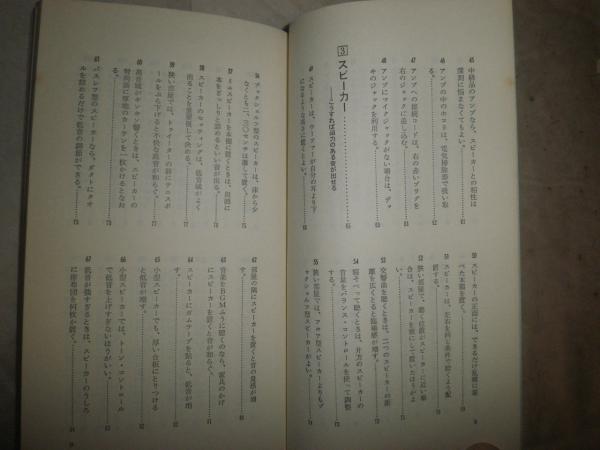 45 中級品のアンプなら、スピーカーとの相性は
深刻に悩まなくてもよい。
46 アンプの中のホコリは、電気掃除器で吸い取
る。
47 アンプへの接続コードは、右の赤いプラグを
右のジャックに差し込む。
48 アンプにマイクジャックがない場合は、デッ
キのジャックを利用する。
3 スピーカー
こうすれば迫力のある音が出せる
49 スピーカーは、ウーファーが自分の耳より下
になるような高さに置くとよい。
50 スピーカーの正面には、できるだけ乱雑に並
べた本箱を置く。
51 スピーカーは、左右を同じ条件で聴くよう配
置する。
52 狭い部屋で、聴く位置がスピーカーに近い場
合は、スピーカーを横にして置いたほうがよ
い。
53 交響曲を聴くときは、二つのスピーカーの距
離を広くとると臨場感が増す。
54 寝そべって聴くときは、片方のスピーカーの
音量を、バランス・コントロールを使って調整
する。
55 狭い部屋では、フロア型スピーカーよりもブ
ックシェルフ型スピーカーがよい。
56 ブックシェルフ型のスピーカーは、床から少
なくとも二、三〇センチは離して置く。
57 ミニスピーカーを本棚に置くときは、周囲に
本をぎっしりと詰めるといい音が出る。
58 スピーカーのセッティングは、低音域がよく
出ることを重要視して決める。
59 狭い部屋では、トゥイーターの前にテニスボ
ールをぶら下げると不快な高音が和らぐ。
60 高音域がキンキン響くときは、スピーカーの
対向面に厚地のカーテンを一枚かけるとなお
る。
61 バスレフ型のスピーカーなら、ダクトにタオ
ルを詰めるだけで低音の調節ができる。
62 部屋の隅にスピーカーを置くと音の量感が増
す。
63 音楽をBGMふうに聴くのなら、家具のかげ
にスピーカーを置くと音が和らぐ。
64 スピーカーにガムテープを貼ると、低音が増
す。
65 小型スピーカーでも、厚い台板にとりつける
と低音が増す。
66 小型スピーカーでは、トーン・コントロール
で低音を上げすぎないほうがいい。
67 低音が強すぎるときは、スピーカーのうしろ
に座布団を何枚か置く。